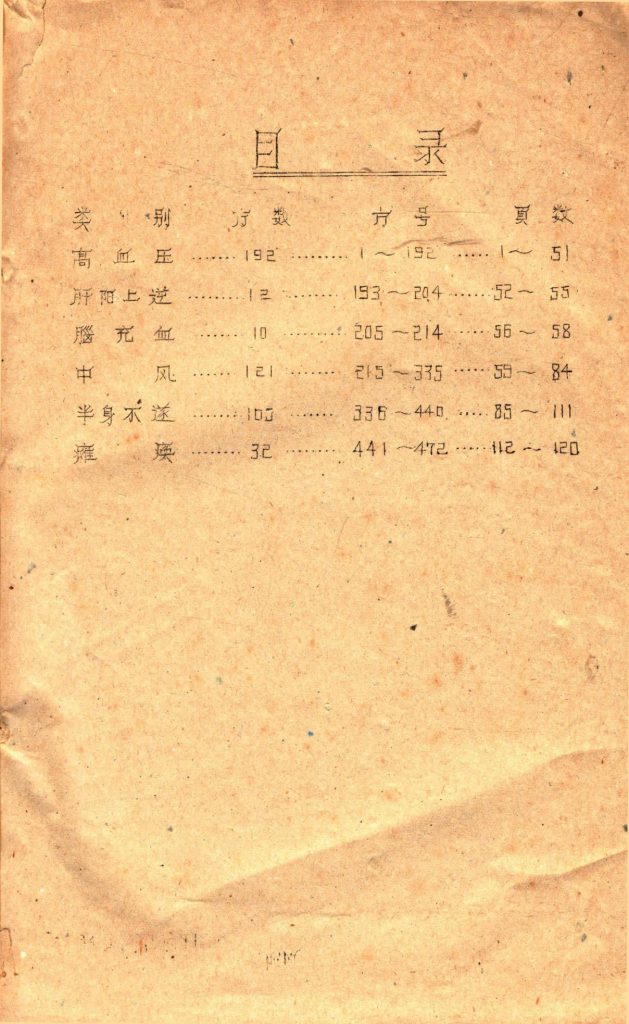 目 录
类 别 方 数 方 号 页 数
高 血 压 ······ 192 ········· 1 ~ 192 ····· 1 ~ 51
肝阳上逆 ······· 12 ······· 193 ~ 204 ······ 52 ~ 55
腦 充 血 ······· 10 ······· 205 ~ 214 ······ 56 ~ 58
中 风 ······· 121 ······· 215 ~ 335 ······ 59 ~ 84
半身不遂 ········ 105 ······· 336 ~ 440 ······ 85 ~ 111
瘫 痪 ········ 32 ········ 441 ~ 472 ····· 112 ~ 120